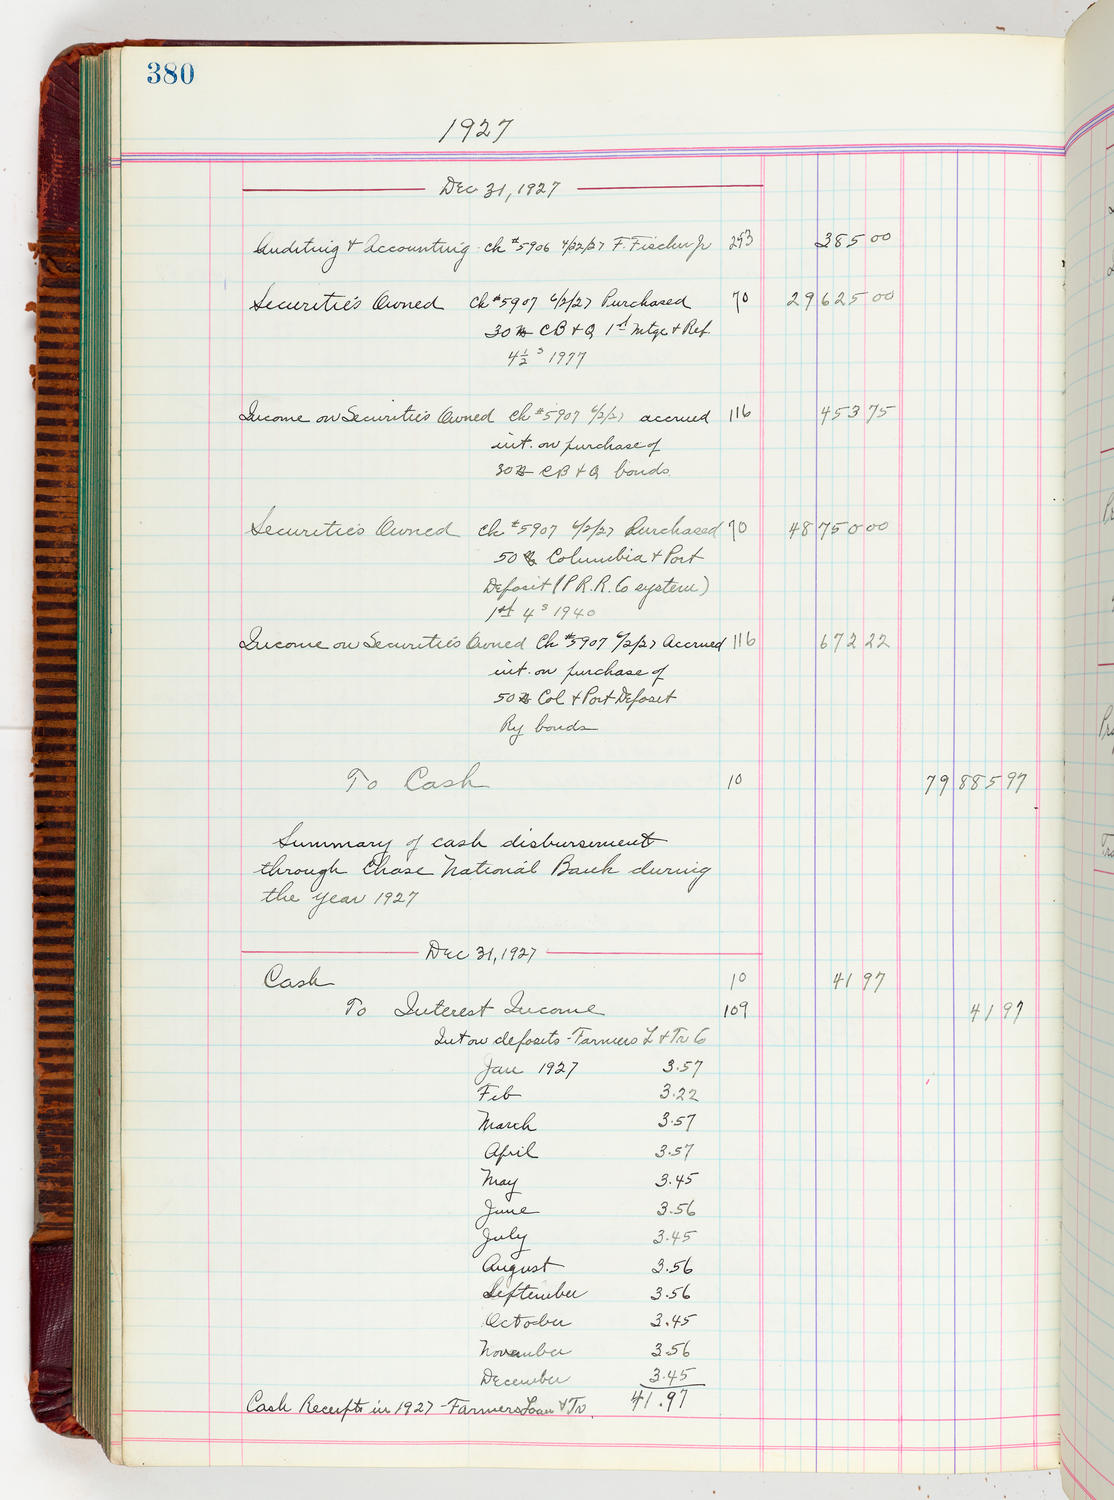 380
1927
Dec 31, 1927
Auditing & Accounting Ch #5906 4/22/27 F. Fischer Jr 253 385 00
Securities Owned Ch #5907 6/2/27 Purchased 70 29 625 00
30 M CB & Q 1st Mtge & Ref.
4½s 1977
Income on Securities Owned Ch #5907 6/2/27 accrued 116 453 75
int. on purchase of
30 M CB & Q bonds
Securities Owned Ch #5907 6/2/27 Purchased 70 48 750 00
50 M Columbia & Port
Deposit (P R.R. Co system)
1st 4s 1940
Income on Securities Owned Ch #5907 6/2/27 Accrued 116 672 22
int. on purchase of
50 M Col & Port Deposit
Ry bonds
To Cash 10 79 885 97
Summary of cash disbursement
through Chase National Bank during
the year 1927
Dec 31, 1927
Cash 10 41 97
To Interest Income 109 41 97
Int on deposits - Farmers L & Tr Co
Jan 1927 3.57
Feb 3.22
March 3.57
April 3.57
May 3.45
June 3.56
July 3.45
August 3.56
September 3.56
October 3.45
November 3.56
December 3.45
41.97
Cash Receipts in 1927 - Farmers Loan & Tr